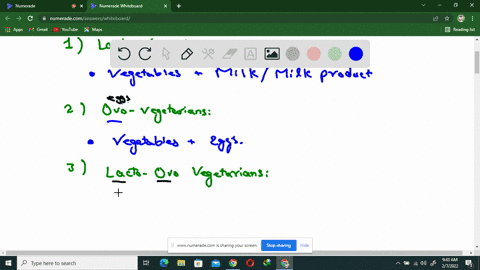 Numerade
Numerade Whiteboard
numerade.com/answers/whiteboard/
Apps
Gmail
YouTube
Maps
Reading list
1)
• Vegetables + Milk/Milk product
eggs
2) Ovo-Vegetarians:
• Vegetables + Eggs.
3) Lacto-Ovo Vegetarians:
www.numerade.com is sharing your screen.
Stop sharing
Hide
Type here to search
9:40 AM
2/7/2022